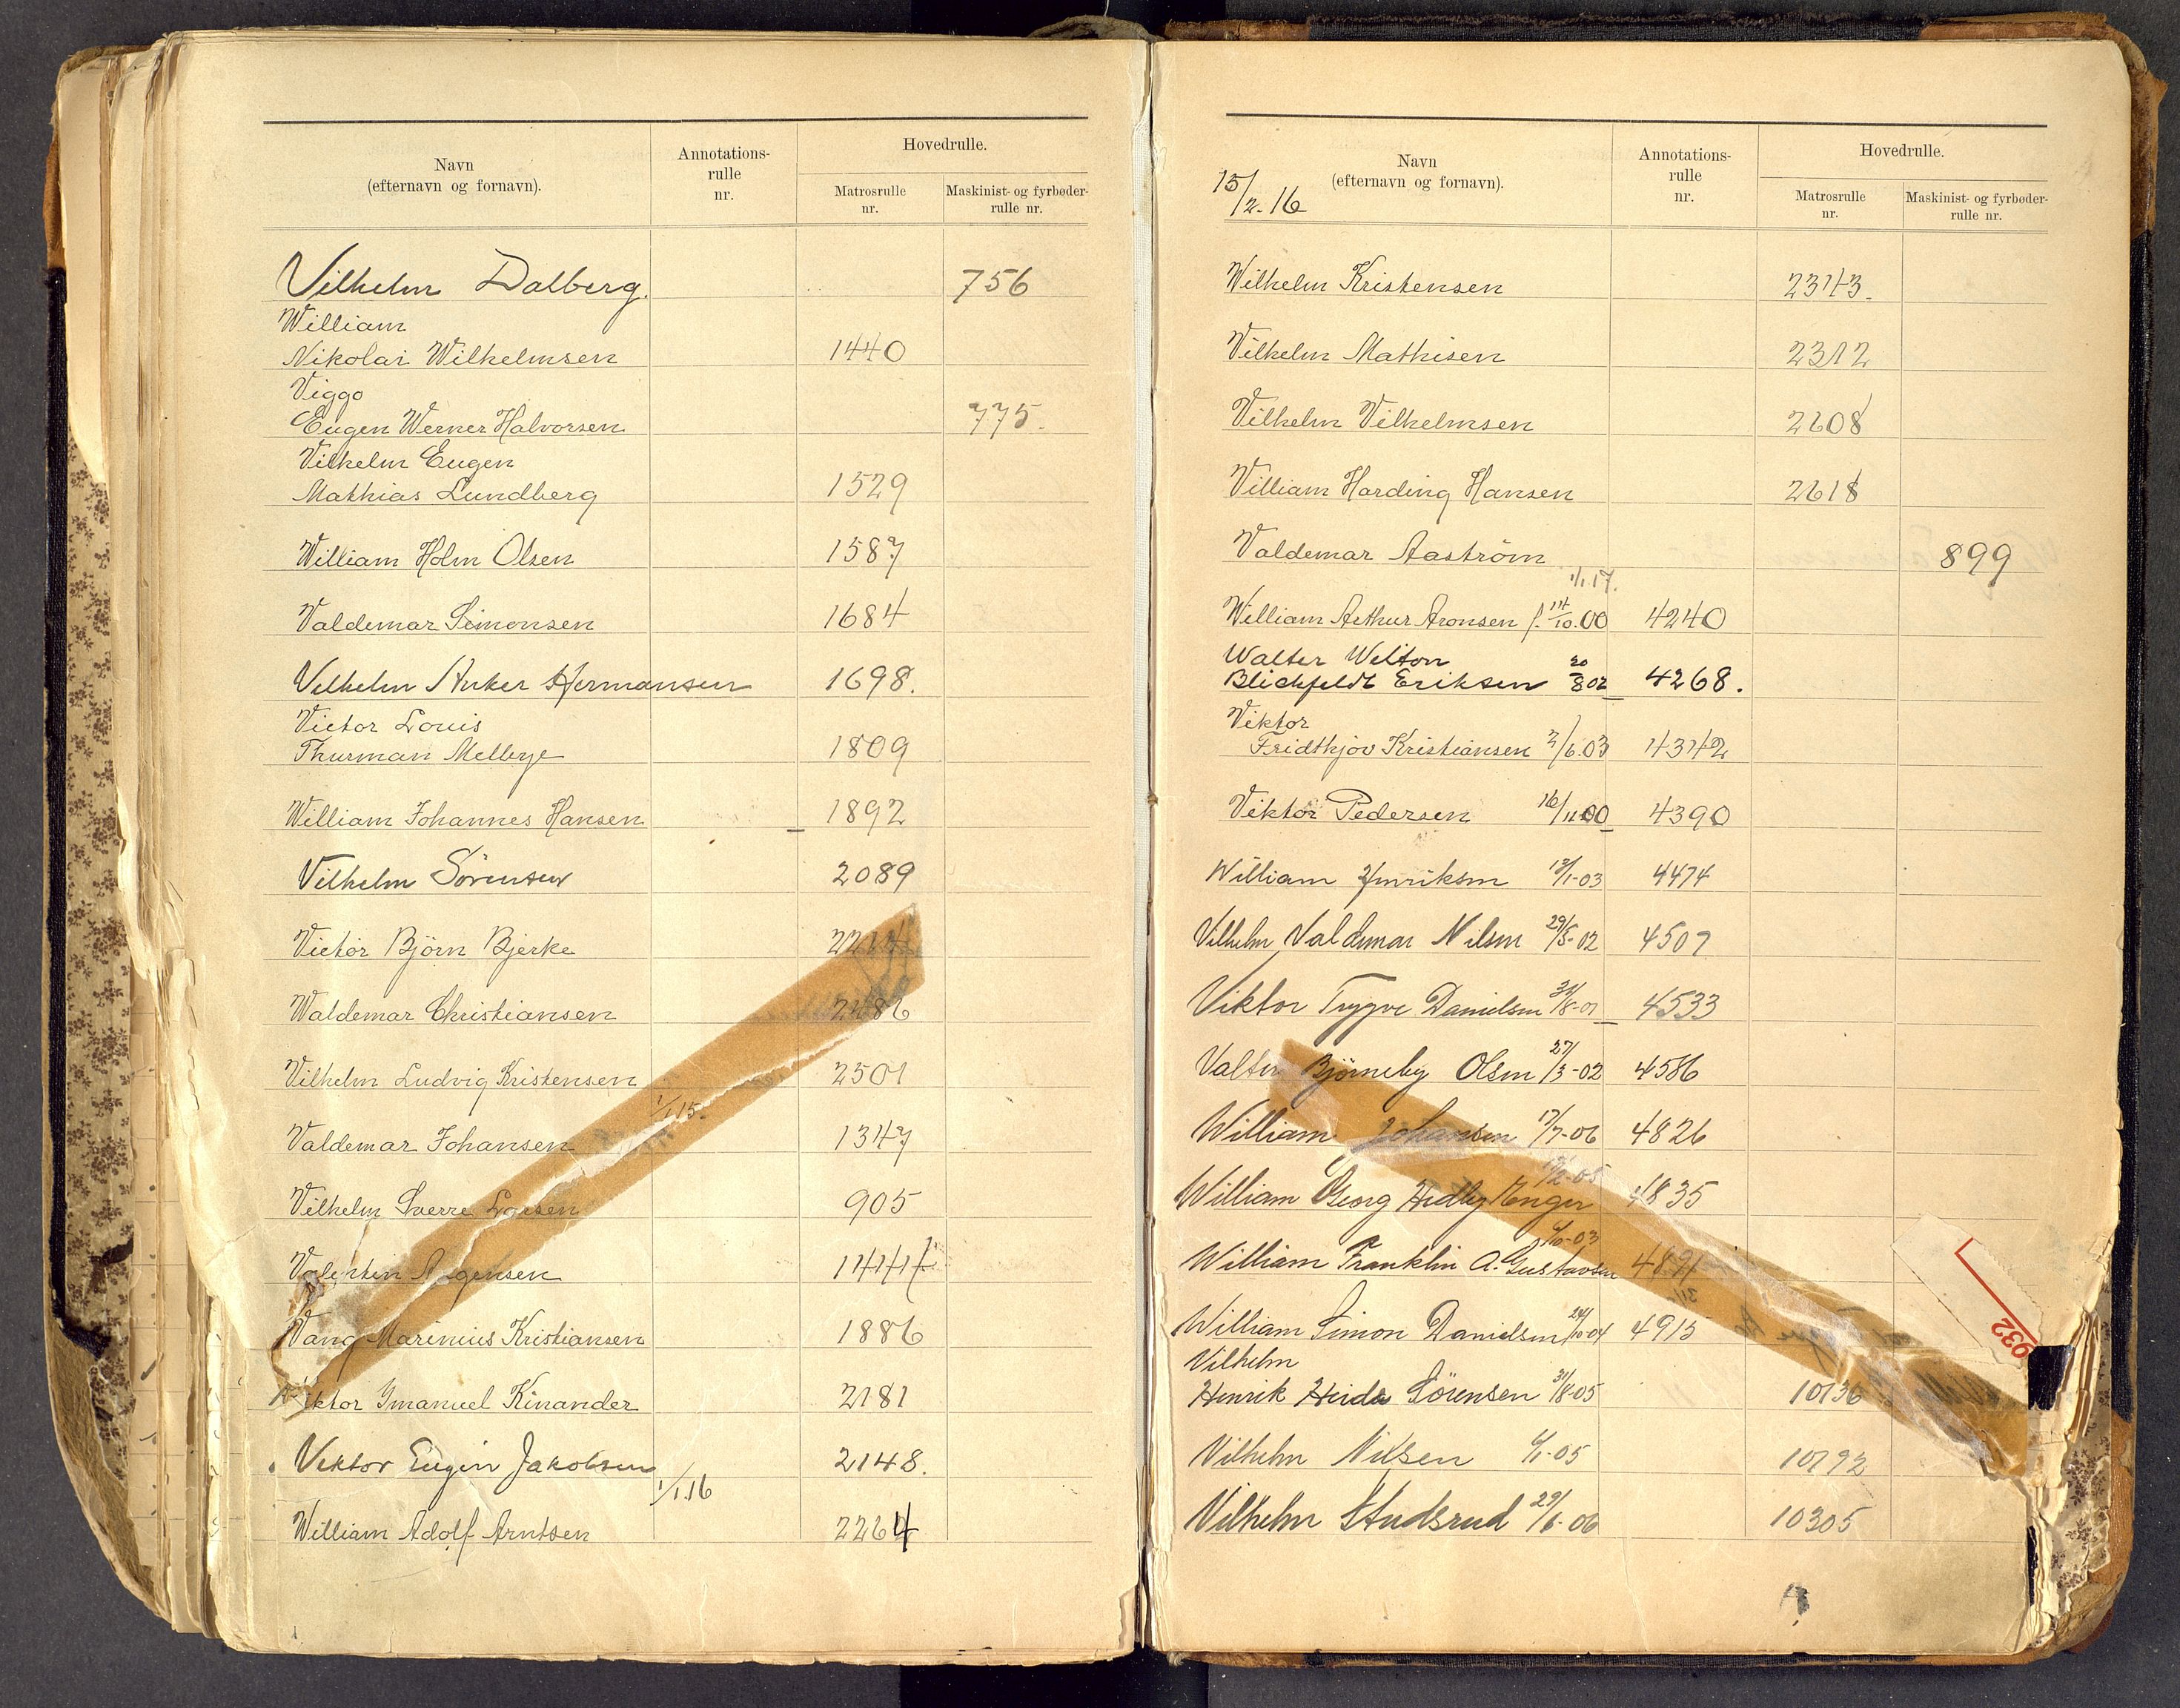 Navn
(efternavn og fornavn).
Annotations-
rulle
nr.
Hovedrulle.
Matrosrulle
nr.
Maskinist- og fyrbøder-
rulle nr.
Vilhelm Dalberg. 756
William
Nikolai Wilhelmsen 1440
Viggo
Eugen Werner Halvorsen 775.
Vilhelm Eugen
Mathias Lundberg 1529
William Holm Olsen 1587
Valdemar Simonsen 1684
Vilhelm Anker Hermansen 1698.
Victor Louis
Thurman Mellbye 1809
William Johannes Hansen 1892
Vilhelm Sörensen 2089
Victor Björn Bjerke
Waldemar Christiansen 2486
Vilhelm Ludvig Kristensen 2501
1/1.15.
Valdemar Johansen 1347
Vilhelm Sverre Larsen 905
Valentin 1444
Vang Marinius Kristiansen 1886
Viktor Imanuel Kinander 2181
Viktor Eugen Jakobsen 2148.
1/1.16
William Adolf Arntsen 2264
15/2.16
Navn
(efternavn og fornavn).
Annotations-
rulle
nr.
Hovedrulle.
Matrosrulle
nr.
Maskinist- og fyrbøder-
rulle nr.
Wilhelm Kristensen 2343.
Vilhelm Mathisen 2312
Vilhelm Vilhelmsen 2608
William Harding Hansen 2618
Valdemar Aaström 899
1/1.17.
William Arthur Aronsen f. 14/10.00 4240
Walter Welton
Blichfeldt Eriksen 20/8 02 4268.
Viktor
Fridthjov Kristiansen 2/6.03 4342
Viktor Pedersen 16/11.00 4390
William Henriksen 13/1-03 4474
Vilhelm Valdemar Nilsen 29/5-02 4507
Viktor Trygve Danielsen 31/8-01 4533
Valter Björneby Olsen 27/3-02 4586
William Johansen 17/7-06 4826
William Georg Hedley Enger 4835
William Franklin A. Gustavsen 4891
William Simon Danielsen 24/10-04 4915
Vilhelm
Henrik Sörensen 31/8-05 10136
Vilhelm Nilsen 6/1-05 10192
Vilhelm Studsrud 29/6-06 10305
932